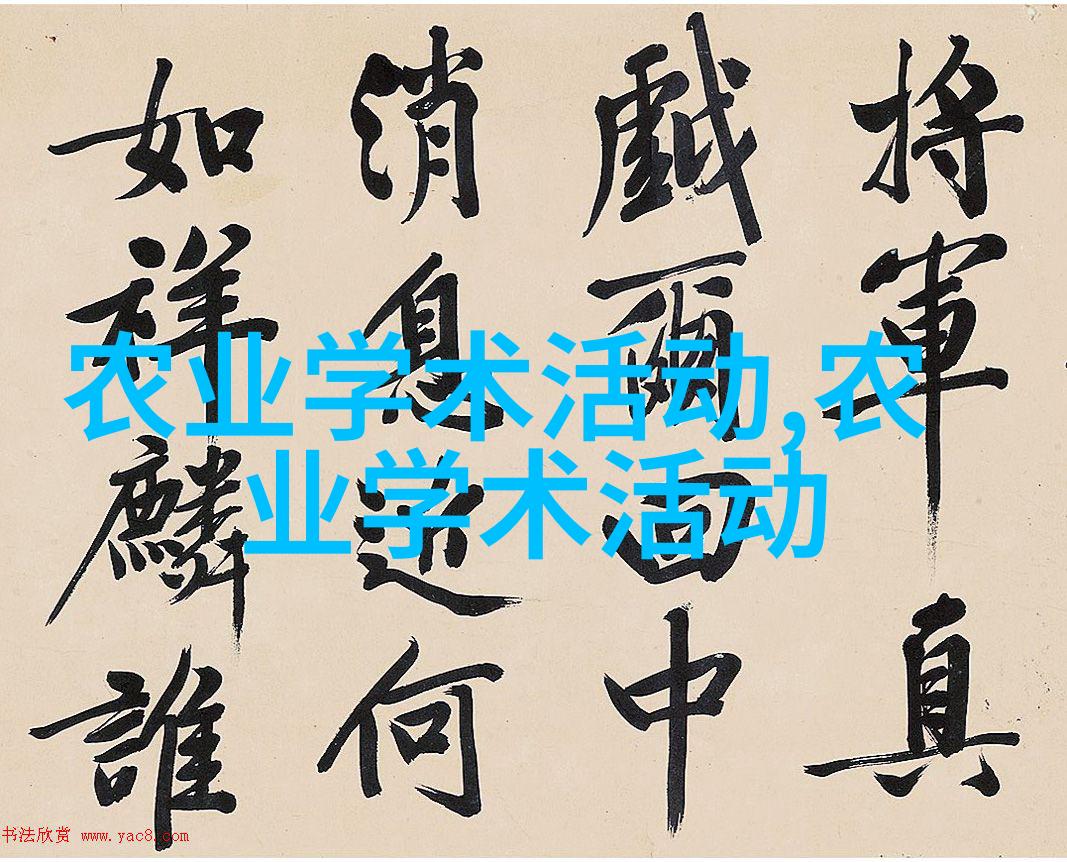 将軍真
戲爾中
消息近何
如祥麟誰
农业学术活动,农
业学术活动
书法欣赏 www.yac8.com